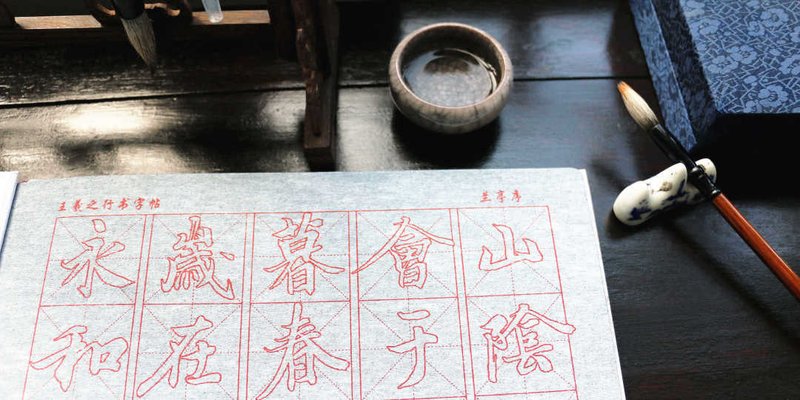 王羲之行书字帖
兰亭序
永和
歲在
暮春
會于
山陰